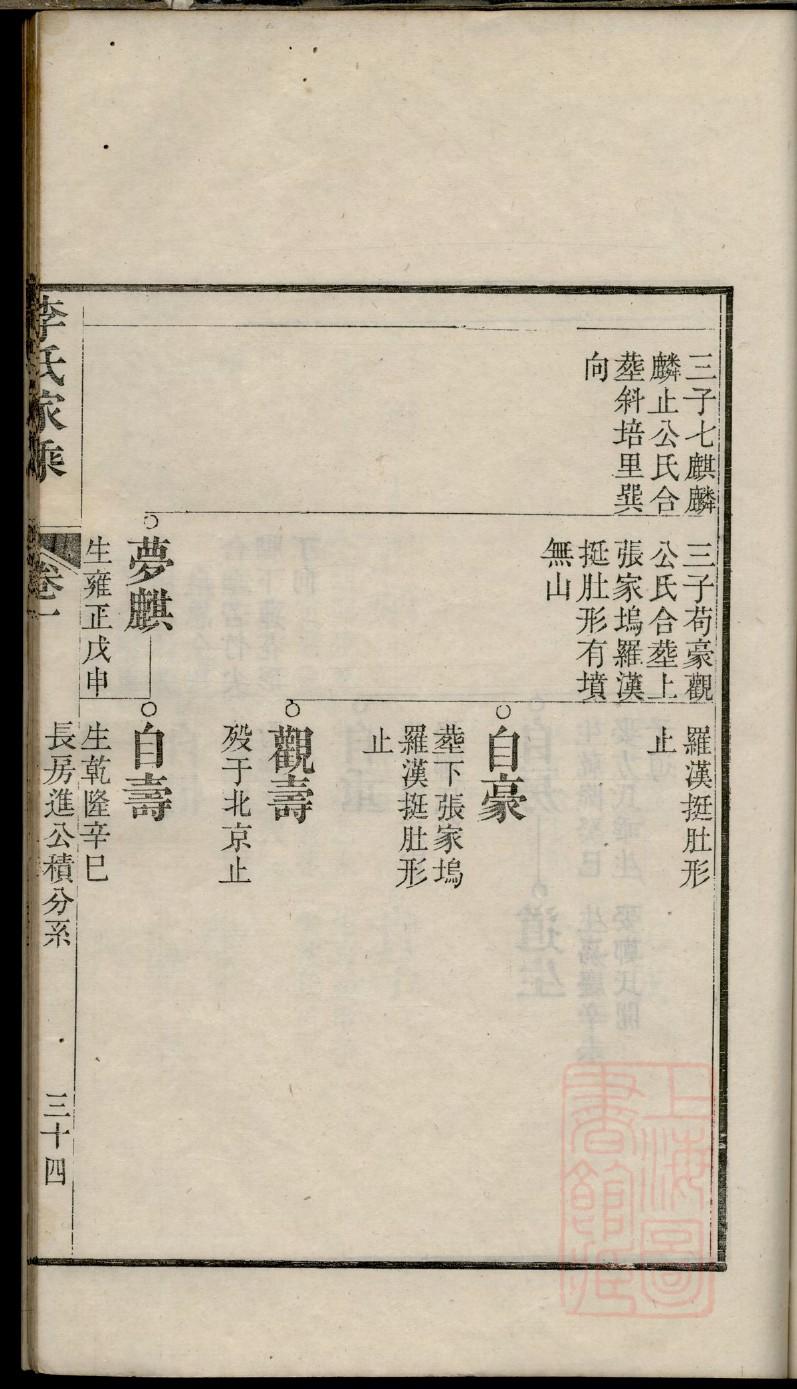 三子七麒麟
麟止公氏合
塟斜培里巽
向
三子苟豪觀
公氏合塟上
張家塢羅漢
挺肚形有墳
無山
羅漢挺肚形
止
自豪
塟下張家塢
羅漢挺肚形
止
觀壽
歿于北京止
夢麒
生雍正戊申
自壽
生乾隆辛巳
李氏家乘
卷一
長房進公積分系
三十四
上海圖
書館藏